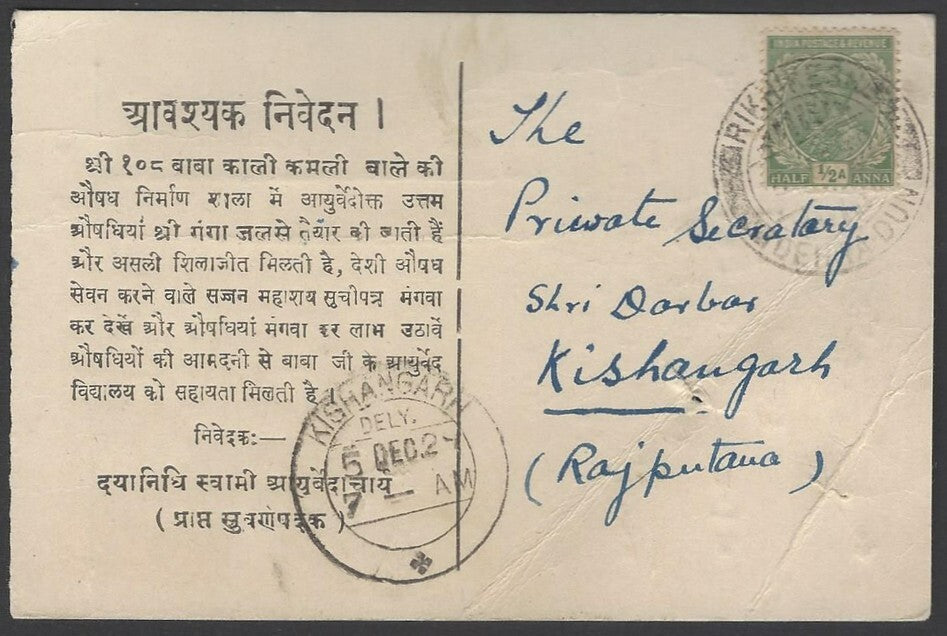 आवश्यक निवेदन ।
श्री १०८ बाबा काली कमली वाले की
औषध निर्माण शाला में आयुर्वेदोक्त उत्तम
औषधियां श्री गंगा जलसे तैयार की जाती हैं
और असली शिलाजीत मिलती है, देशी औषध
सेवन करने वाले सज्जन महाशय सुचीपत्र मंगवा
कर देखें और औषधियां मंगवा कर लाभ उठावें
औषधियों की आमदनी से बाबा जी के आयुर्वेद
विद्यालय को सहायता मिलती है ।
निवेदक:—
दयानिधि स्वामी आयुर्वेदाचार्य
( प्राप्त सुवर्णपदक )
KISHANGARH
DELY.
5 DEC.2
7 — AM
INDIA POSTAGE & REVENUE
HALF 1/2A ANNA
The
Private Secratary
Shri Darbar
Kishangarh
(Rajputana)